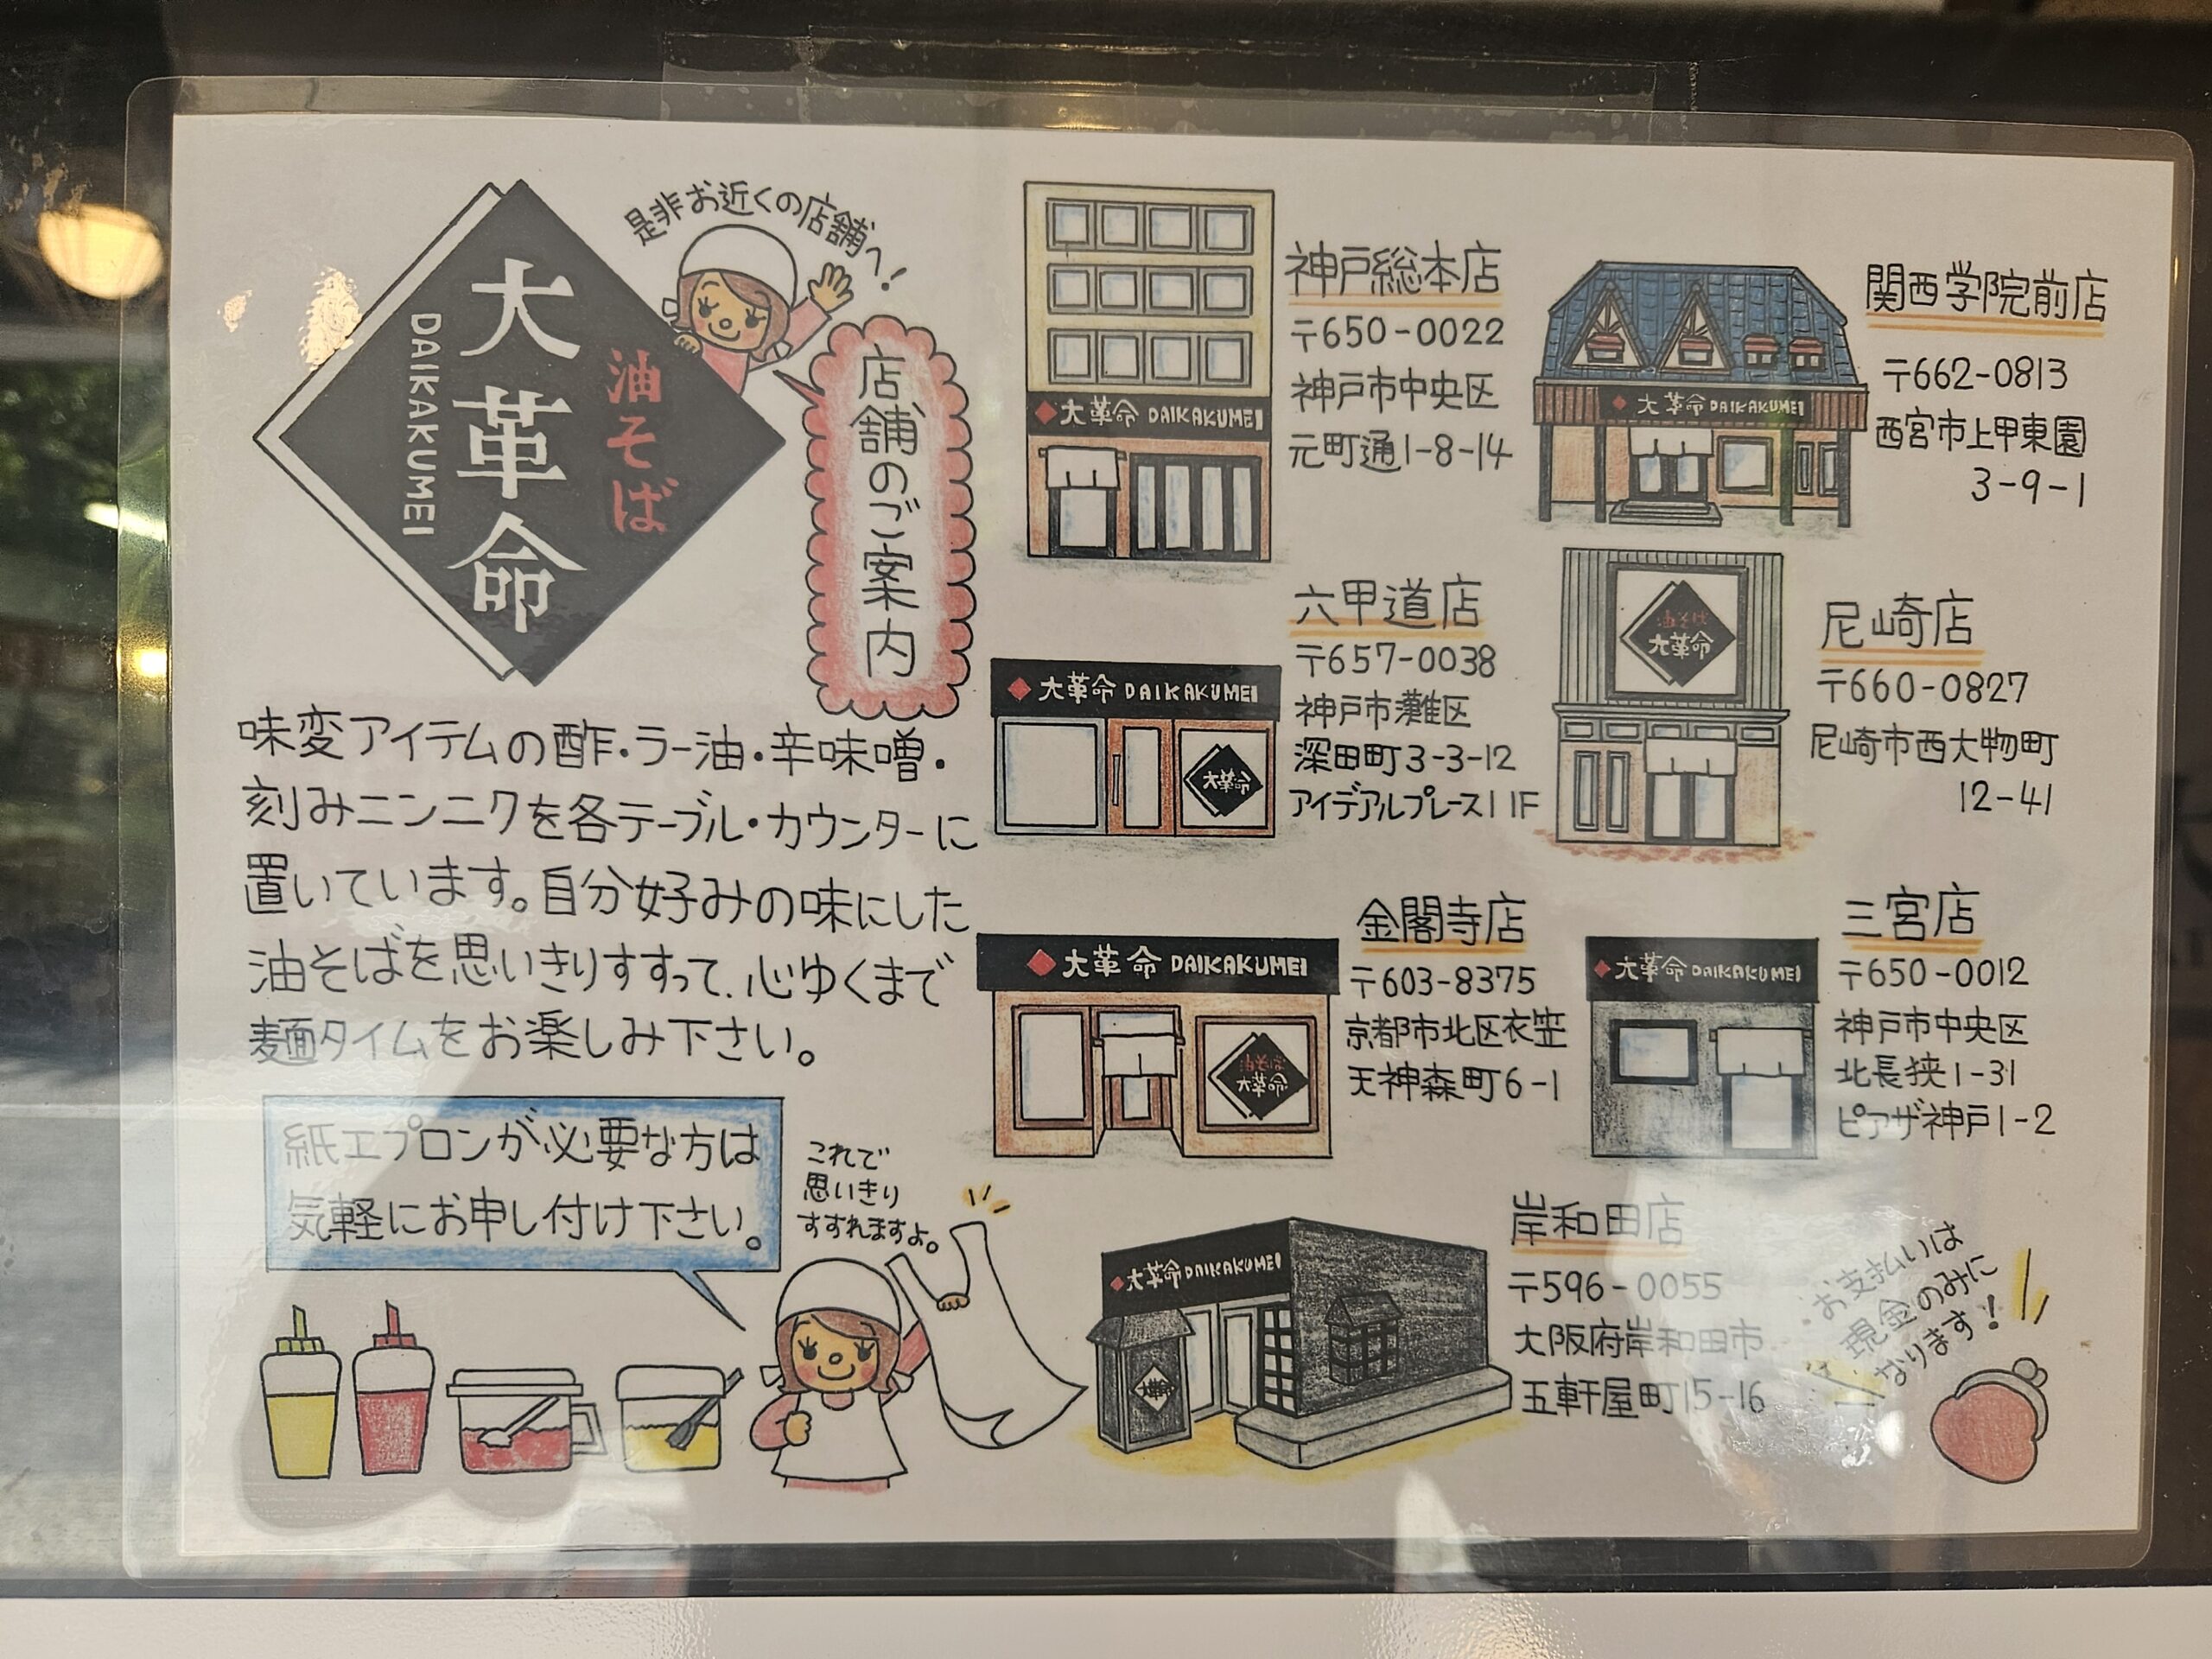 大革命
油そば
DAIKAKUMEI
是非お近くの店舗へ!
店舗のご案内
味変アイテムの酢・ラー油・辛味噌・
刻みニンニクを各テーブル・カウンターに
置いています。自分好みの味にした
油そばを思いきりすすって、心ゆくまで
麺タイムをお楽しみ下さい。
紙エプロンが必要な方は
気軽にお申し付け下さい。
これで
思いきり
すすれますよ。
大革命 DAIKAKUMEI
神戸総本店
〒650-0022
神戸市中央区
元町通1-8-14
大革命 DAIKAKUMEI
関西学院前店
〒662-0813
西宮市上甲東園
3-9-1
大革命 DAIKAKUMEI
大革命
六甲道店
〒657-0038
神戸市灘区
深田町3-3-12
アイデアルプレース1 1F
油そば
大革命
尼崎店
〒660-0827
尼崎市西大物町
12-41
大革命 DAIKAKUMEI
油そば
大革命
金閣寺店
〒603-8375
京都市北区衣笠
天神森町6-1
大革命 DAIKAKUMEI
三宮店
〒650-0012
神戸市中央区
北長狭1-31
ピアザ神戸1-2
大革命 DAIKAKUMEI
岸和田店
〒596-0055
大阪府岸和田市
五軒屋町15-16
・お支払いは
現金のみに
なります!